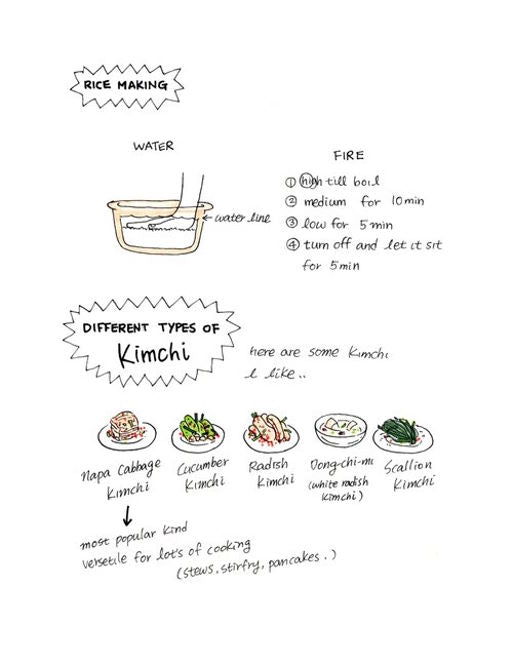 RICE MAKING
WATER
← water line
FIRE
① high till boil
② medium for 10 min
③ low for 5 min
④ turn off and let it sit
for 5 min
DIFFERENT TYPES OF
Kimchi
here are some Kimchi
I like..
Napa Cabbage
Kimchi
Cucumber
Kimchi
Radish
Kimchi
Dong-chi-mi
(white radish
kimchi)
Scallion
Kimchi
most popular kind
versetile for lot's of cooking
(stews, stirfry, pancakes.)